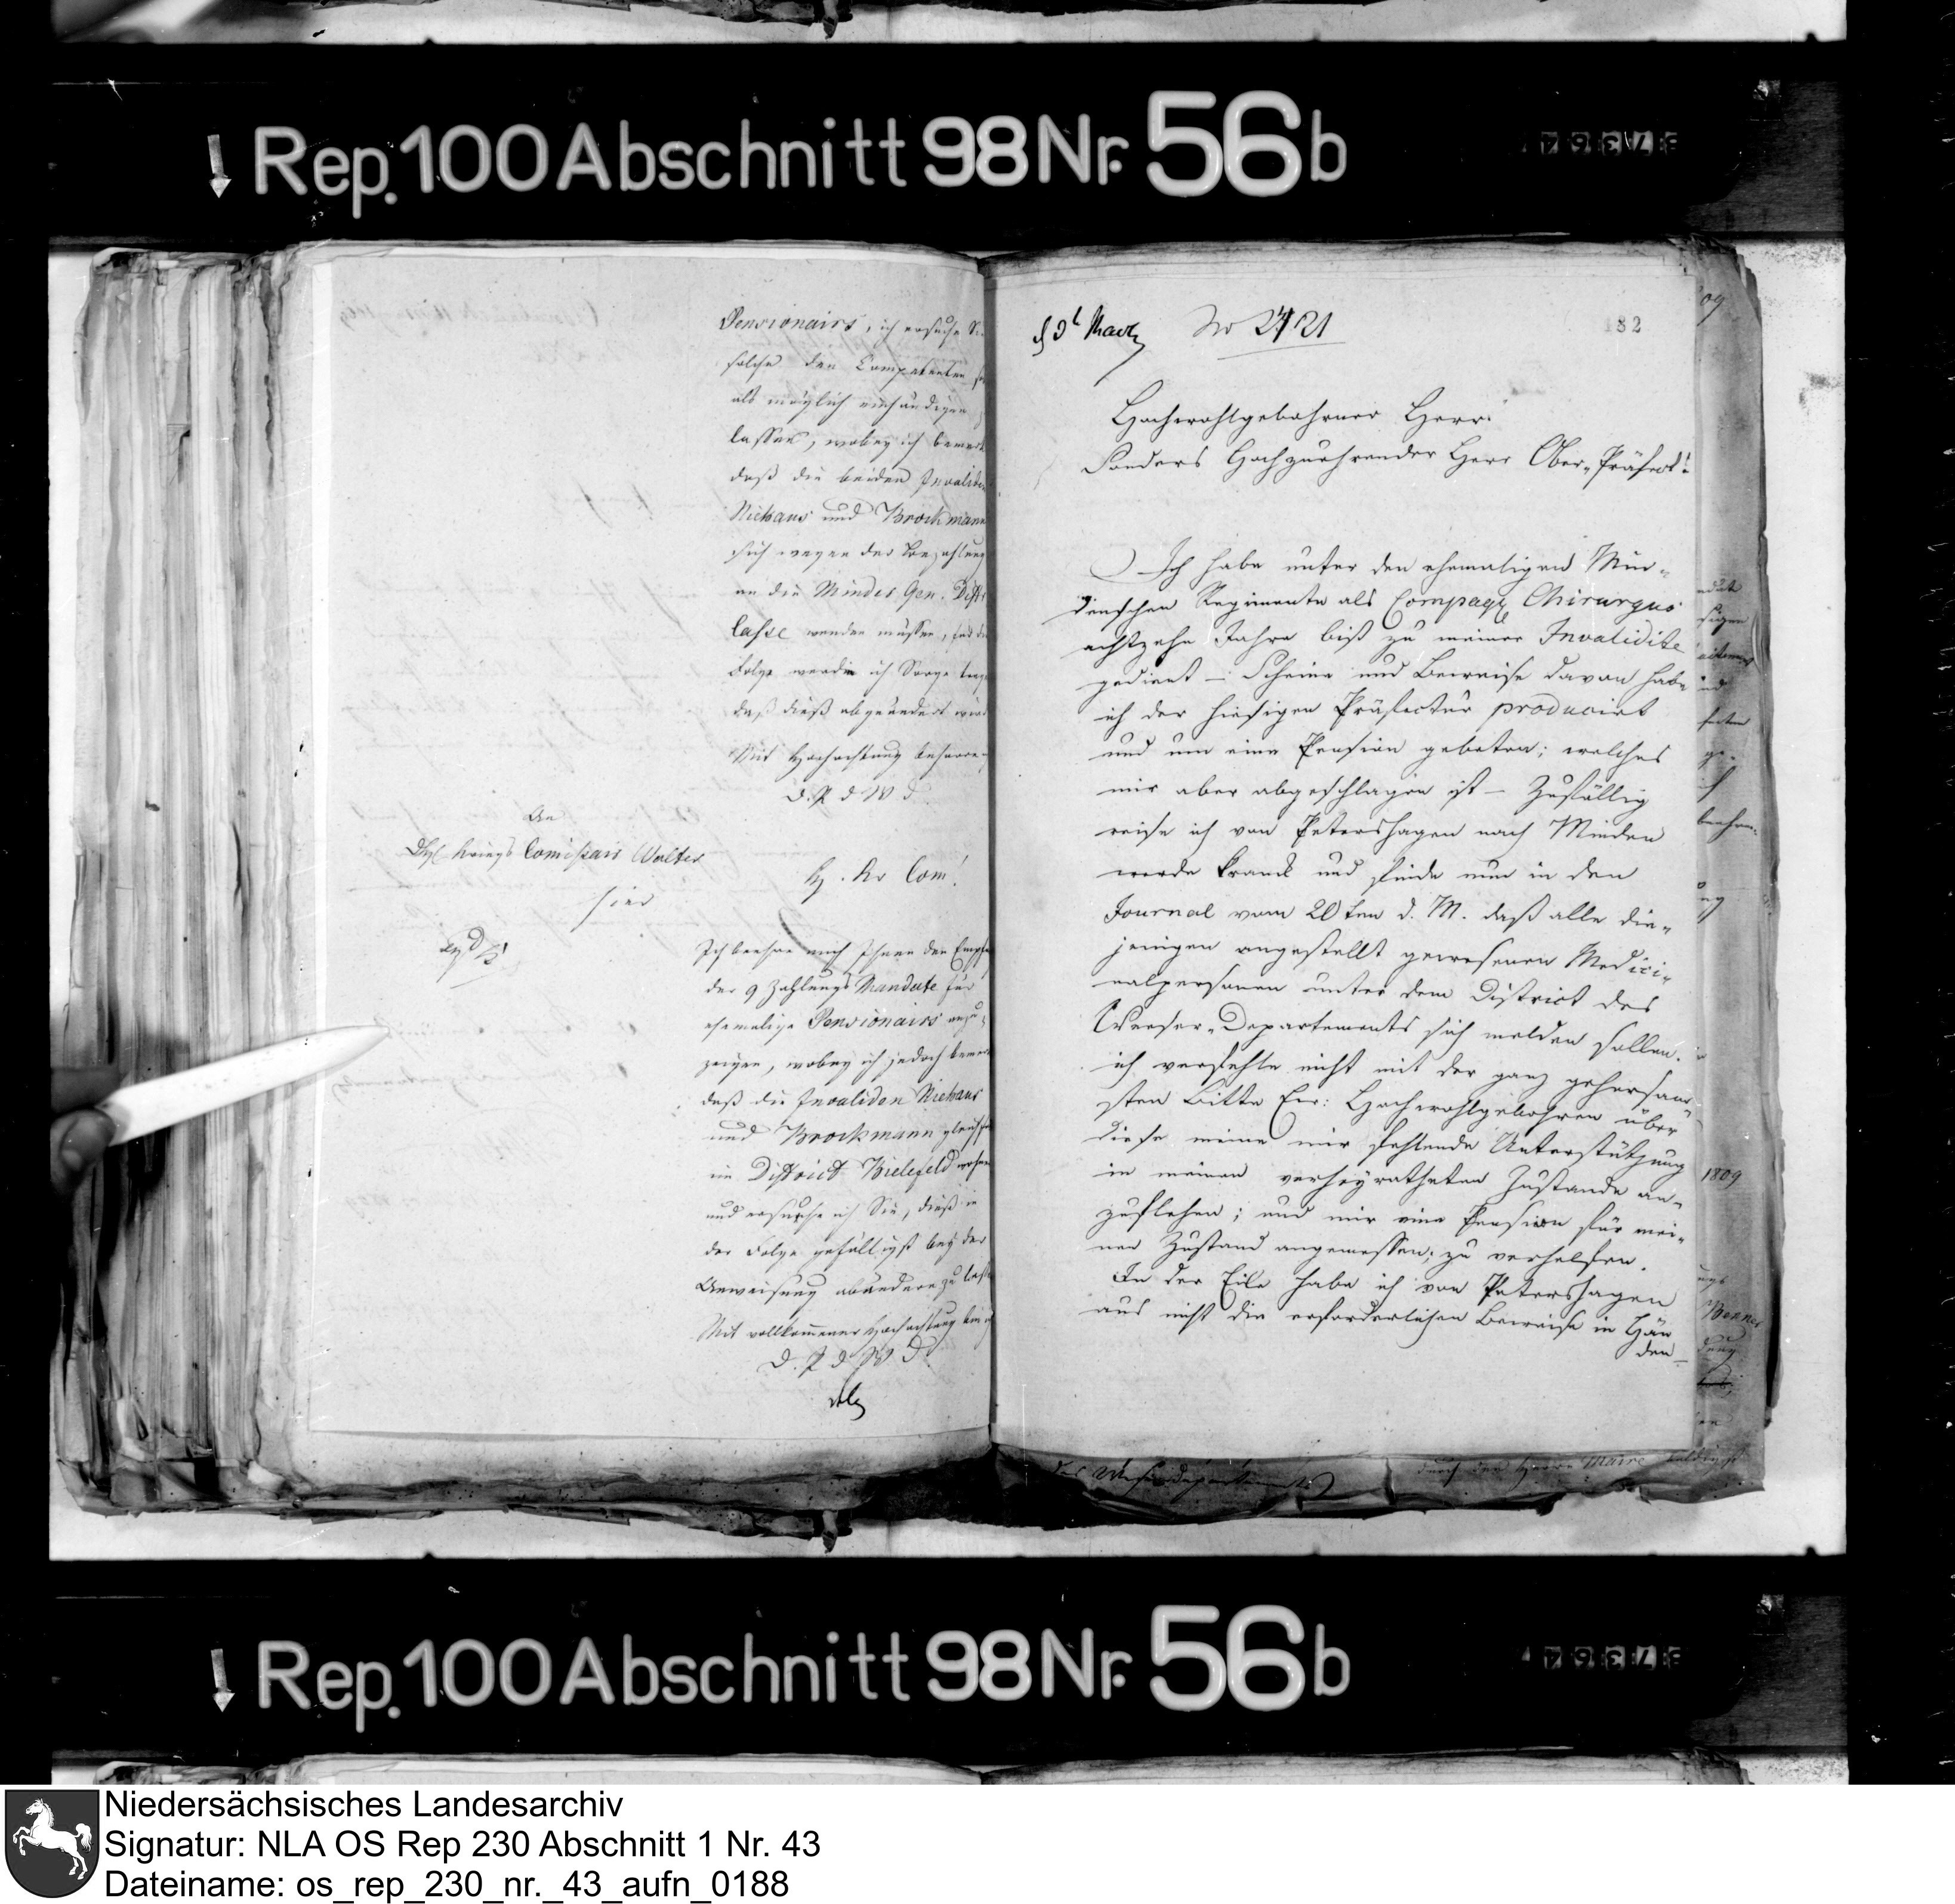 Rep. 100 Abschnitt 98 Nr. 56 b
Pensionairs, ich ersuche Sie
solche den Competenten
als möglich einhändigen
lassen, wobey ich bemerke
daß die beiden Invaliden
Niehaus und Brockmann
sich wegen der Bezahlung
an die Minder Gen. Distr
Casse wenden müssen, für die
Folge werde ich Sorge tragen
daß dieß abgeändert wird
Mit Hochachtung beharre
D. P d W D
An
Kriegs Comißair Wolter
hier
H. Kr Com!
Ich beehre mich Ihnen den Empfang
der 9 Zahlungs Mandate für
ehemalige Pensionairs anzu
zeigen, wobey ich jedoch bemerke
daß die Invaliden Niehaus
und Brockmann gleichfalls
im District Bielefeld wohnen
und ersuche ich Sie, dieß in
der Folge gefälligst bey der
Anweisung abändern zu lassen
Mit vollkommener Hochachtung bin ich
D. P d W D
No 2421
182
Hochwohlgebohrner Herr!
Sonders Hochzuehrender Herr Ober-Präfect!
Ich habe unter den ehemaligen Min-
denschen Regimente als Compag Chirurgus
achtzehn Jahre biß zu meiner Invalidite
gedient – Scheine und Beweise davon habe
ich der hiesigen Präfectur producirt
und um eine Pension gebeten; welches
mir aber abgeschlagen ist – Zufällig
reise ich von Petershagen nach Minden
werde krank und finde nun in den
Journal vom 20ten d. M. daß alle die-
jenigen angestellt gewesenen Medici-
nalpersonen unter dem District des
Weeser-Departements sich melden sollen.
ich verfehle nicht mit der ganz gehorsam-
sten Bitte Ew: Hochwohlgebohren über
diese meine mir fehlende Unterstützung
in meinen verheyratheten Zustande an-
zuflehen; und mir eine Pension für mei-
nen Zustand angemessen; zu verhelfen.
In der Eile habe ich von Petershagen
aus nicht die erforderlichen Beweise in Hän
den
1809
des Weserdepartements
durch den Herrn Maire
Rep. 100 Abschnitt 98 Nr. 56 b
Niedersächsisches Landesarchiv
Signatur: NLA OS Rep 230 Abschnitt 1 Nr. 43
Dateiname: os_rep_230_nr._43_aufn_0188